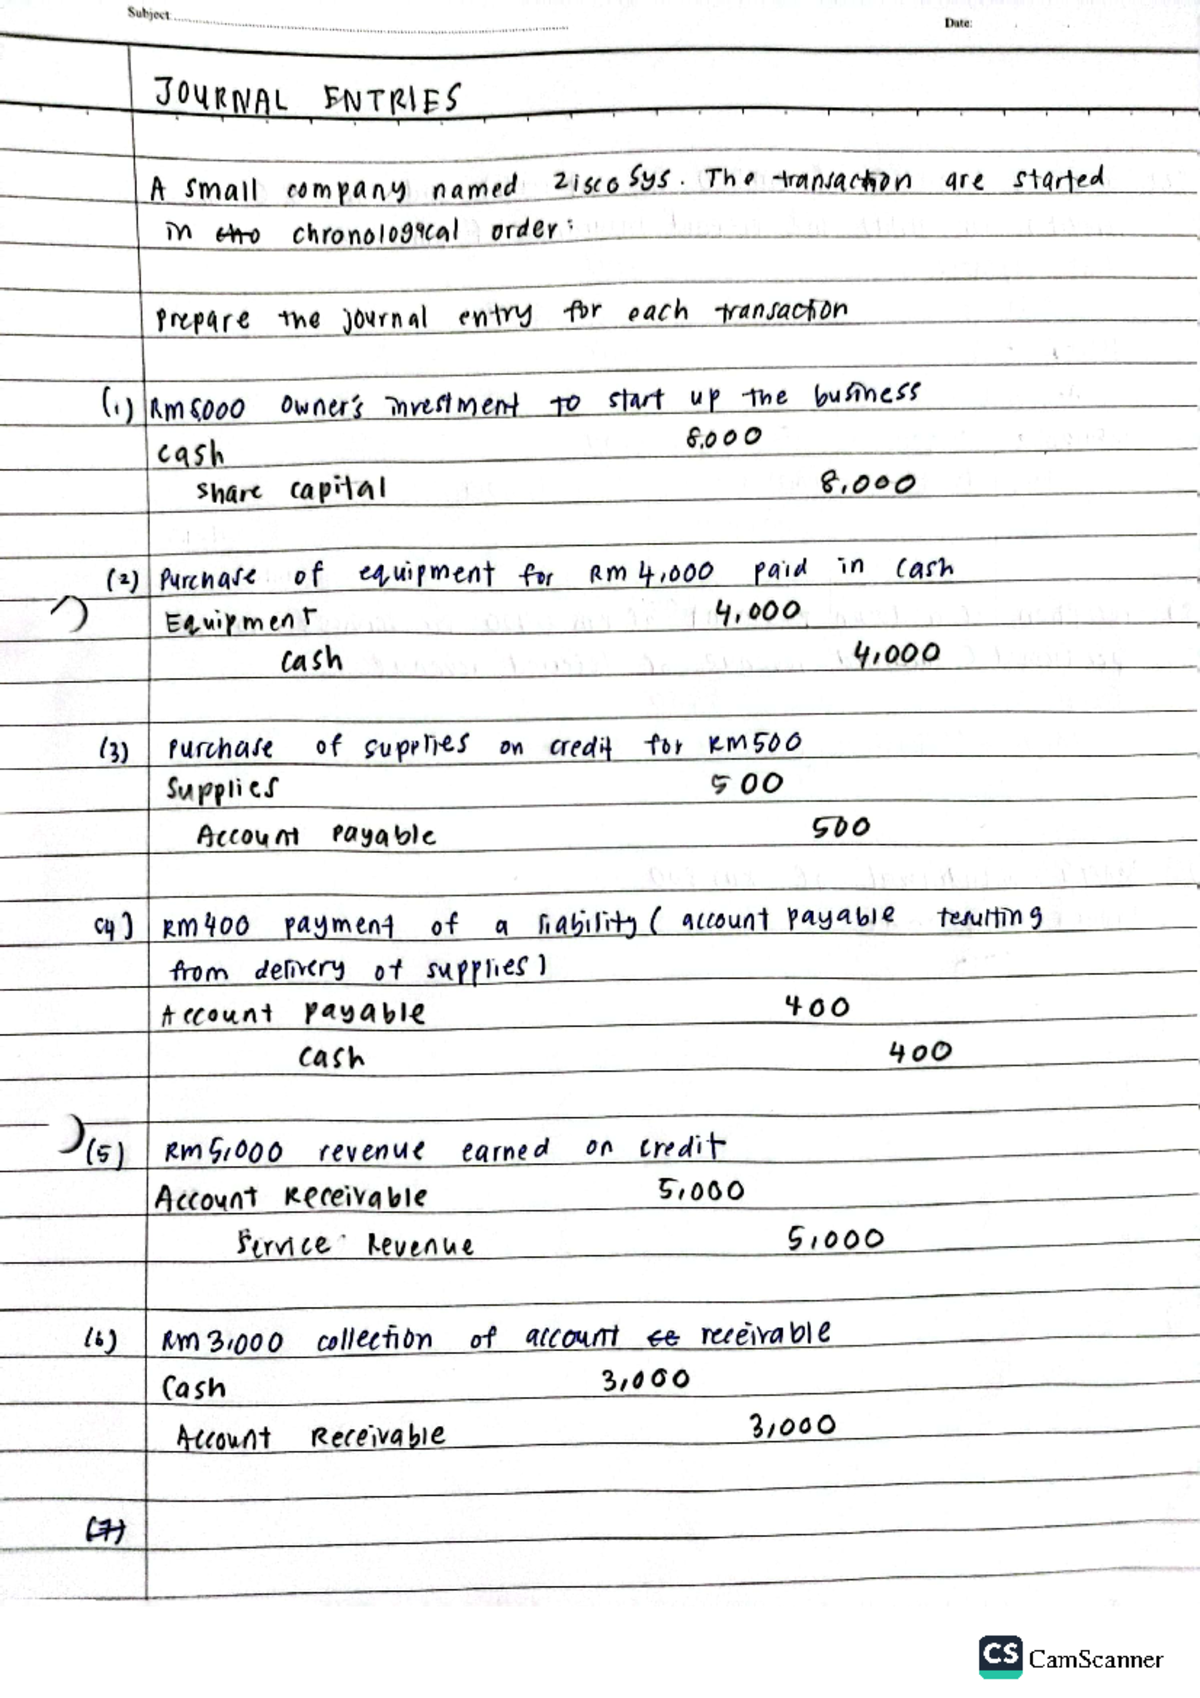 Subject:
Date:
JOURNAL ENTRIES
A small company named Zisco Sys. The transaction are started
in chro chronological order:
Prepare the journal entry for each transaction
(1) RM8,000 owner's investment to start up the business
Cash 8,000
Share capital 8,000
(2) Purchase of equipment for RM 4,000 paid in cash
Equipment 4,000
Cash 4,000
(3) Purchase of supplies on credit for RM500
Supplies 500
Account Payable 500
(4) RM400 payment of a liability ( account payable resulting
from delivery of supplies)
Account Payable 400
Cash 400
(5) RM5,000 revenue earned on credit
Account Receivable 5,000
Service Revenue 5,000
(6) RM 3,000 collection of account receivable
Cash 3,000
Account Receivable 3,000
(7)
CS CamScanner